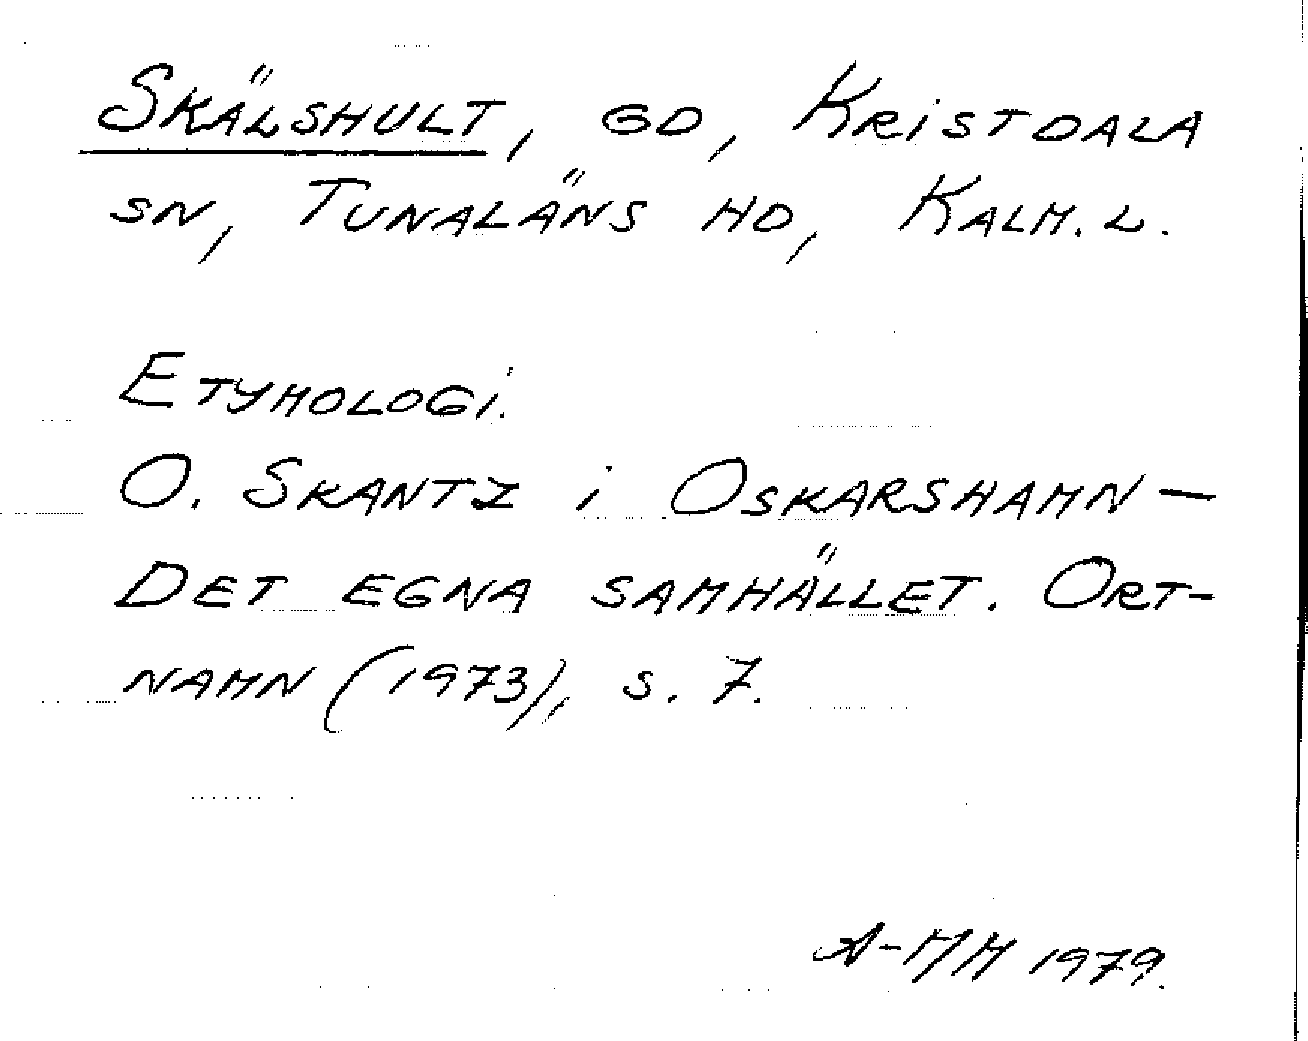 Skälshult, gd, Kristdala
sn, Tunaläns hd, Kalm. l.
Etymologi.
O. Skantz i Oskarshamn —
Det egna samhället. Ort-
namn (1973), s. 7.
A-MM 1979.